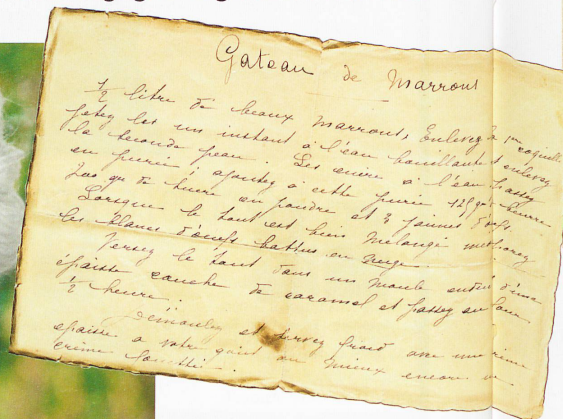 Gateau de Marrons
1/2 litre de beaux marrons, Enlevez la 1re coquille
jetez les un instant à l'eau bouillante et enlevez
la seconde peau. Les cuire à l'eau, passez
en purée, ajoutez à cette purée 125 grs beurre
de sucre en poudre et 3 jaunes d'œufs
Lorsque le tout est bien mélangé
les blancs d'œufs battus en neige.
Versez le tout dans un moule enduit d'une
épaisse couche de caramel et passez au four
1/2 heure.
Démoulez et servez froid avec une crème
épaisse à votre goût ou mieux encore une
crème fouettée.